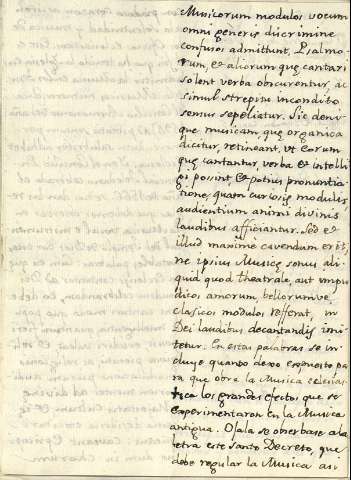 Musicorum modulos vocum
omni generis discrimine
confusos admittunt, Psalmo-
rum, et aliorum quę cantari
solent verba obscurentur, ac
simul strepitu incondito
sonus sepeliatur. Sic deni-
que musicam, quę organica
dicitur, retineant, ut eorum
quę cantantur, verba et intelli
gi possint, et potius pronuntia
tione, quam curiosis modulis
audientium animi divinis
laudibus afficiantur. Sed et
illud maxime cavendum erit,
ne ipsius Musicę sonus ali-
quid quod theatrale, aut impu
dicos amorum, bellorumve,
clasicos modulos refferat, in
Dei laudibus decantandis imi
tetur. En estas palabras se in-
cluye quando dexo expuesto pa
ra que obre la Musica eclesias-
tica los grandes efectos que se
experimentaron en la Musica
antigua. Ojala se observase a la
letra este Santo Decreto, que
debe regular la Musica asi